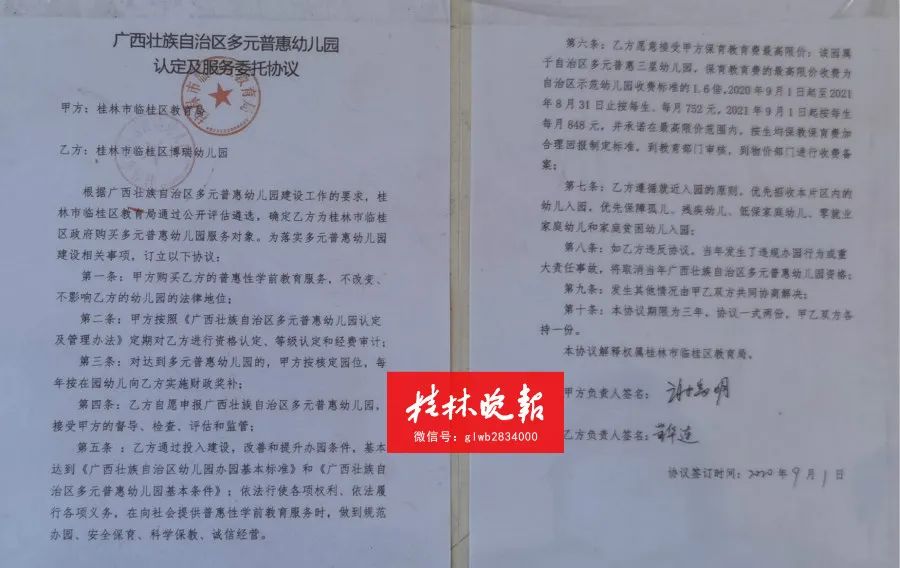 广西壮族自治区多元普惠幼儿园
认定及服务委托协议
甲方：桂林市临桂区教育局
乙方：桂林市临桂区博瑞幼儿园
根据广西壮族自治区多元普惠幼儿园建设工作的要求，桂
林市临桂区教育局通过公开评估遴选，确定乙方为桂林市临桂
区政府购买多元普惠幼儿园服务对象。为落实多元普惠幼儿园
建设相关事项，订立以下协议：
第一条：甲方购买乙方的普惠性学前教育服务，不改变、
不影响乙方的幼儿园的法律地位；
第二条：甲方按照《广西壮族自治区多元普惠幼儿园认定
及管理办法》定期对乙方进行资格认定、等级认定和经费审计；
第三条：对达到多元普惠幼儿园的，甲方按核定园位，每
年按在园幼儿向乙方实施财政奖补；
第四条：乙方自愿申报广西壮族自治区多元普惠幼儿园，
接受甲方的督导、检查、评估和监管；
第五条：乙方通过投入建设，改善和提升办园条件，基本
达到《广西壮族自治区幼儿园办园基本标准》和《广西壮族自
治区多元普惠幼儿园基本条件》；依法行使各项权利、依法履
行各项义务，在向社会提供普惠性学前教育服务时，做到规范
办园、安全保育、科学保教、诚信经营。
第六条：乙方愿意接受甲方保育教育费最高限价：该园属
于自治区多元普惠三星幼儿园，保育教育费的最高限价收费为
自治区示范幼儿园收费标准的1.6倍，2020年9月1日起至2021
年8月31日止按每生、每月752元，2021年9月1日起按每生
每月848元，并承诺在最高限价范围内，按生均保教保育费加
合理回报制定标准，到教育部门审核，到物价部门进行收费备
案；
第七条：乙方遵循就近入园的原则，优先招收本片区内的
幼儿入园，优先保障孤儿、残疾幼儿、低保家庭幼儿、零就业
家庭幼儿和家庭贫困幼儿入园；
第八条：如乙方违反协议，当年发生了违规办园行为或重
大责任事故，将取消当年广西壮族自治区多元普惠幼儿园资格；
第九条：发生其他情况由甲乙双方共同协商解决；
第十条：本协议期限为三年，协议一式两份，甲乙双方各
持一份。
本协议解释权属桂林市临桂区教育局。
甲方负责人签名：
乙方负责人签名：
协议签订时间：2020年9月1日
桂林晚报
微信号：glwb2834000